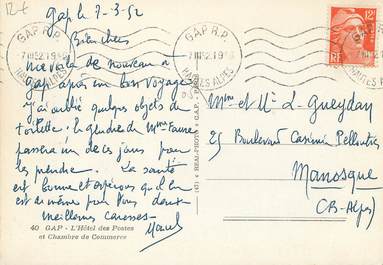 Gap le 7-3-52
Bien chers
Me voilà de nouveau à
Gap après un bon voyage
J'ai oublié quelques objets de
toilette. le gendre de Mme Faure
passera un de ces jours pour
les prendre. La santé
est bonne et espérons qu'il en
est de même pour vous deux
meilleures caresses.
40 GAP - L'Hôtel des Postes
et Chambre de Commerce
GAP R.P.
7 III 52
HAUTES ALPES
GAP R.P.
7 III 52
HAUTES ALPES
12F
RF
Mme et Mr L. Gueydan
25 Boulevard Casimir Pelloutier
Manosque
(B-Alpes)